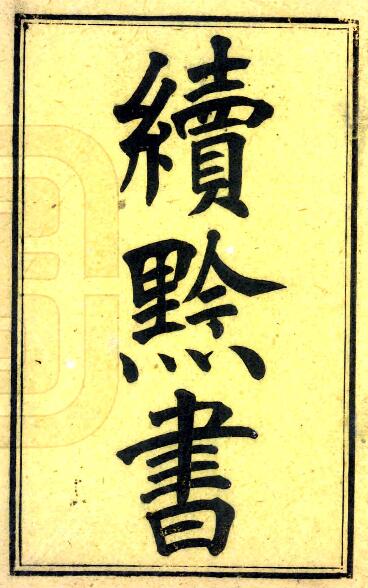 續黔書